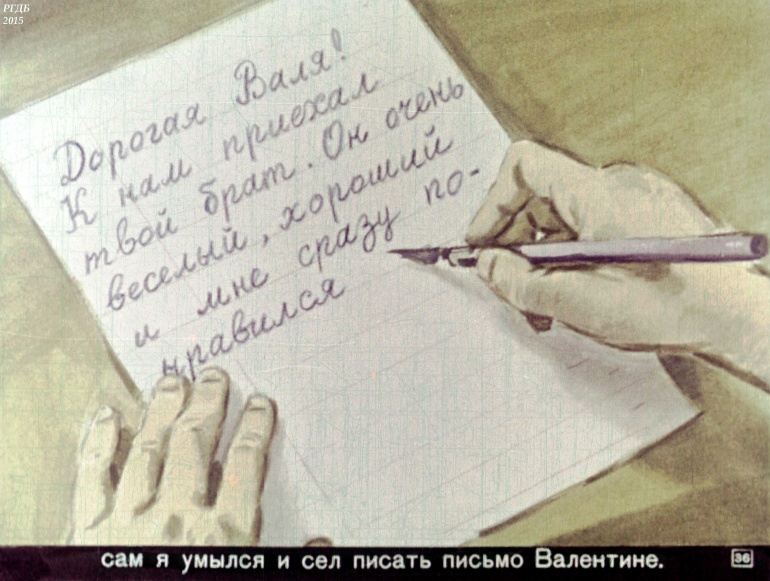 РГДБ
2015
Дорогая Валя!
К нам приехал
твой брат. Он очень
веселый, хороший
и мне сразу по-
нравился
сам я умылся и сел писать письмо Валентине.
36